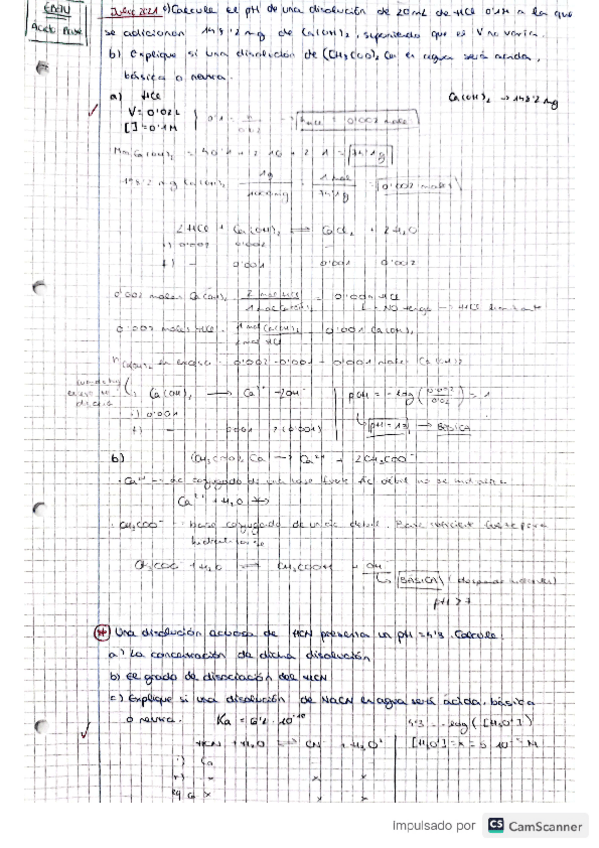 EBAU
Ácido Base
Julio 2021 a) Calcule el pH de una disolución de 20 mL de HCl 0'1M a la que
se adicionan 148'2 mg de Ca(OH)₂, suponiendo que el V no varía.
b) Explique si una disolución de (CH₃COO)₂ Ca en agua será ácida,
básica o neutra.
a) HCl
Ca(OH)₂ → 148'2 mg
V= 0'02L
[ ]=0'1M
0'1 =
= 0'002 moles
Mm Ca(OH)₂ = 40'1 + 2 · 16 + 2 · 1 = 74'1g
148'2 mg Ca(OH)₂ · 1g / 1000mg · 1 mol / 74'1g = 0'002 moles
2HCl + Ca(OH)₂ ⇌ CaCl₂ + 2H₂O
i) 0'002 0'002
f) - 0'001 0'001 0'002
0'002 moles Ca(OH)₂ · 2 mol HCl / 1 mol Ca(OH)₂ = 0'004 HCl
NO tengo → HCl limitante
0'002 moles HCl · 1 mol Ca(OH)₂ / 2 mol HCl = 0'001 Ca(OH)₂
n Ca(OH)₂ en exceso = 0'002 - 0'001 = 0'001 moles Ca(OH)₂
Ca(OH)₂ → Ca²⁺ + 2OH⁻
pOH = - log (0'002 / 0'02) = 1
i) 0'001
pH = 13 → BÁSICA
f) - 0'001 2(0'001)
b) (CH₃COO)₂ Ca → Ca²⁺ + 2CH₃COO⁻
Ca²⁺ + H₂O
CH₃COO⁻ base conjugada de un ác débil. Base suficiente fuerte para
hidrolizarse
CH₃COO⁻ + H₂O ⇌ CH₃COOH + OH⁻
BÁSICA
pH > 7
* Una disolución acuosa de HCN presenta un pH = 4'3. Calcule
a) La concentración de dicha disolución
b) El grado de disociación del HCN
c) Explique si una disolución de NaCN en agua será ácida, básica
o neutra. Ka = 6'2 · 10⁻¹⁰
4'3 = - log ([H₃O⁺])
HCN + H₂O ⇌ CN⁻ + H₃O⁺
[H₃O⁺] = x = 5 · 10⁻⁵ M
i) Co
x x
Impulsado por CS CamScanner